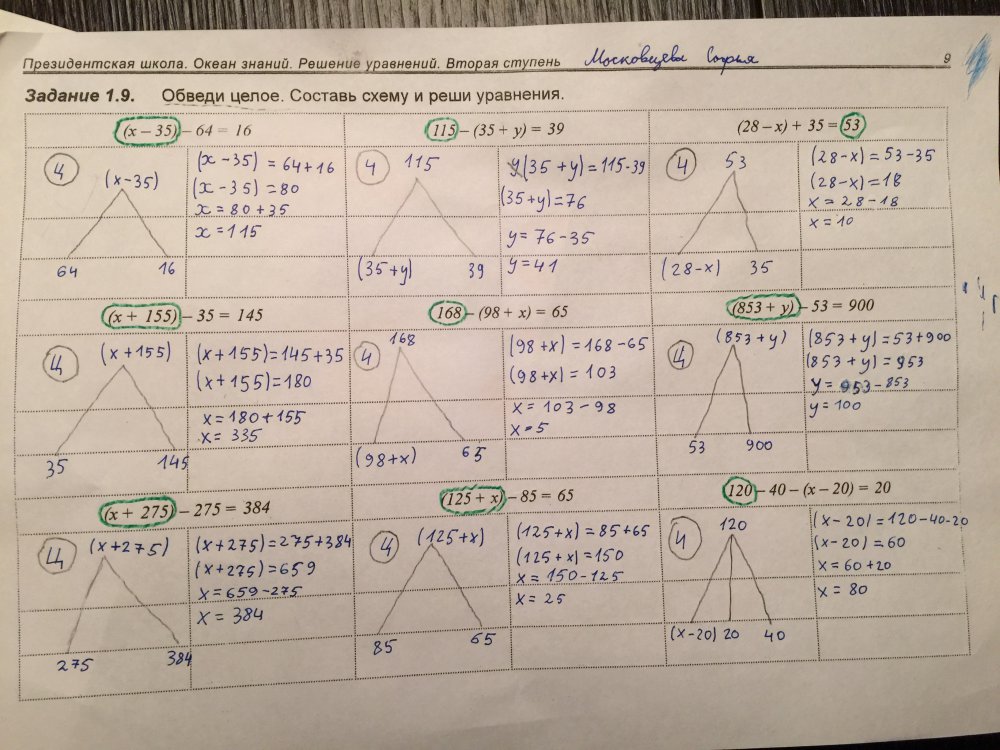 Президентская школа. Океан знаний. Решение уравнений. Вторая ступень
9
Задание 1.9. Обведи целое. Составь схему и реши уравнения.
(x – 35) – 64 = 16
Ц
(x-35)
64 16
(x-35) = 64+16
(x-35) = 80
x = 80+35
x = 115
115 – (35 + y) = 39
Ч
115
(35+y) 39
(35+y)=115-39
(35+y)=76
y = 76-35
y = 41
(28 – x) + 35 = 53
Ч
53
(28-x) 35
(28-x)=53-35
(28-x)=18
x = 28-18
x = 10
(x + 155) – 35 = 145
Ц
(x+155)
35 145
(x+155)=145+35
(x+155)=180
x = 180+155
x = 335
168 – (98 + x) = 65
Ч
168
(98+x) 65
(98+x)=168-65
(98+x)=103
x = 103-98
x = 5
(853 + y) – 53 = 900
Ц
(853+y)
53 900
(853+y)=53+900
(853+y)=953
y = 953-853
y = 100
(x + 275) – 275 = 384
Ц
(x+275)
275 384
(x+275)=275+384
(x+275)=659
x = 659-275
x = 384
(125 + x) – 85 = 65
Ц
(125+x)
85 65
(125+x)=85+65
(125+x)=150
x = 150-125
x = 25
120 – 40 – (x – 20) = 20
Ч
120
(x-20) 20 40
(x-20)=120-40-20
(x-20)=60
x = 60+20
x = 80